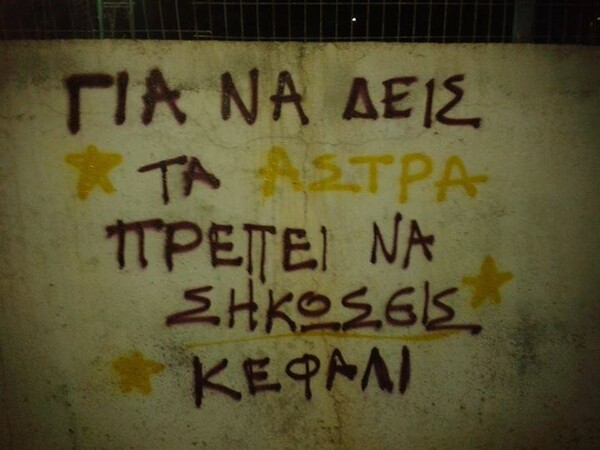 ΓΙΑ ΝΑ ΔΕΙΣ
ΤΑ ΑΣΤΡΑ
ΠΡΕΠΕΙ ΝΑ
ΣΗΚΩΣΕΙΣ
ΚΕΦΑΛΙ